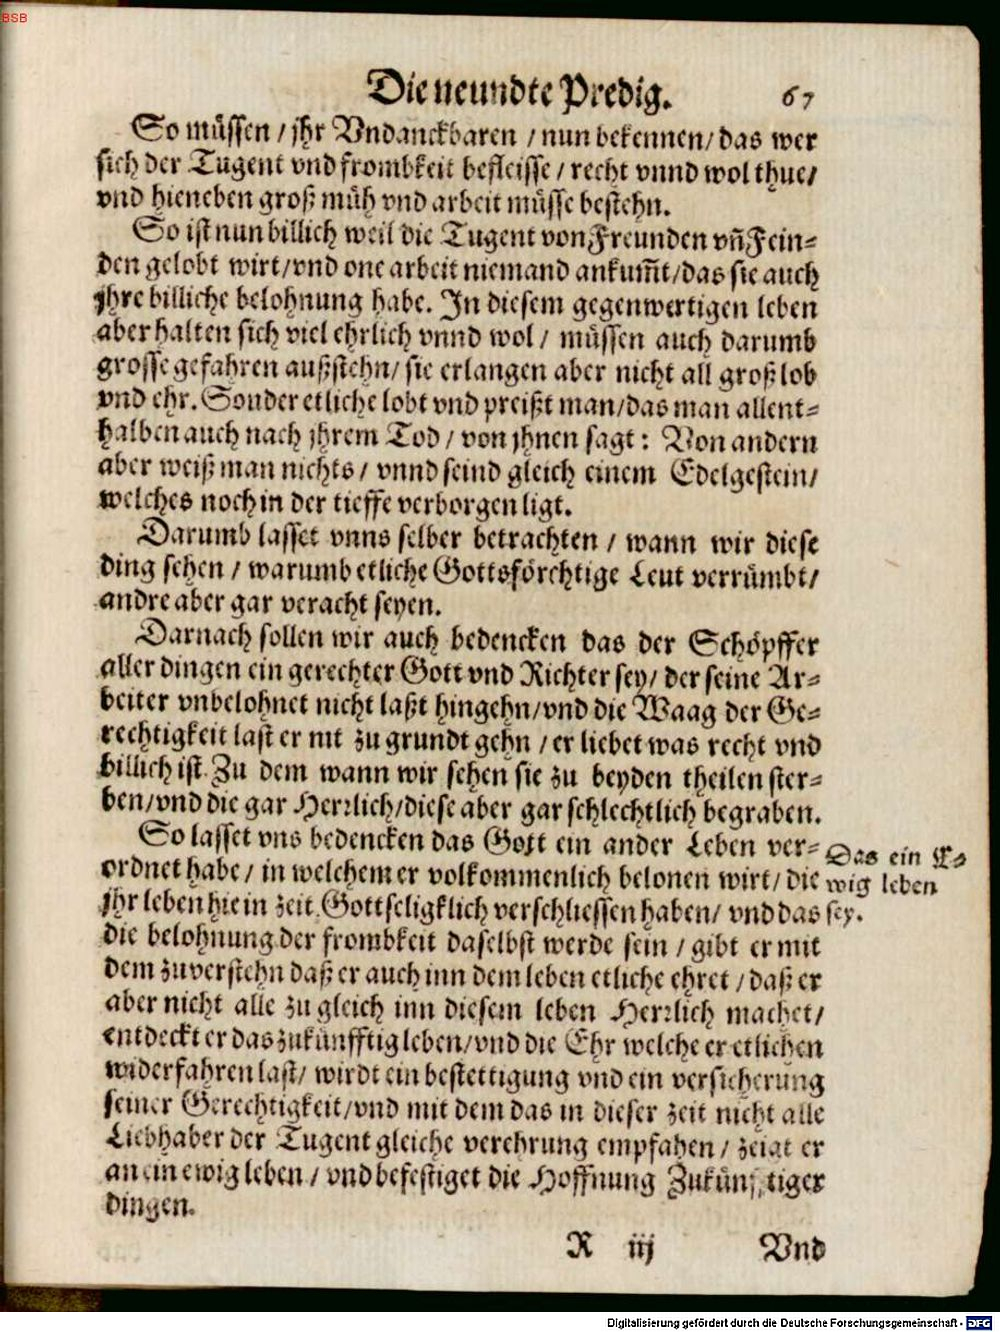 BSB
Die neundte Predig. 67
So müssen / jhr Vndanckbaren / nun bekennen / das wer
sich der Tugent vnd frombkeit befleisse / recht vnnd wol thue /
vnd hieneben groß müh vnd arbeit müsse bestehn.
So ist nun billich weil die Tugent von Freunden vñ Fein⸗
den gelobt wirt / vnd one arbeit niemand ankum̃t / das sie auch
jhre billiche belohnung habe. In diesem gegenwertigen leben
aber halten sich viel ehrlich vnnd wol / müssen auch darumb
grosse gefahren außstehn / sie erlangen aber nicht all groß lob
vnd ehr. Sonder etliche lobt vnd preißt man / das man allent⸗
halben auch nach jhrem Tod / von jhnen sagt : Von andern
aber weiß man nichts / vnnd seind gleich einem Edelgestein /
welches noch in der tieffe verborgen ligt.
Darumb lasset vnns selber betrachten / wann wir diese
ding sehen / warumb etliche Gottsförchtige Leut verrümbt /
andre aber gar veracht seyen.
Darnach sollen wir auch bedencken das der Schöpffer
aller dingen ein gerechter Gott vnd Richter sey / der seine Ar⸗
beiter vnbelohnet nicht laßt hingehn / vnd die Waag der Ge⸗
rechtigkeit last er nit zu grundt gehn / er liebet was recht vnd
billich ist. Zu dem wann wir sehen sie zu beyden theilen ster⸗
ben / vnd die gar Herrlich / diese aber gar schlechtlich begraben.
So lasset vns bedencken das Gott ein ander Leben ver⸗
ordnet habe / in welchem er volkommenlich belonen wirt / die
jhr leben hie in zeit Gottseligklich verschliessen haben / vnd das
die belohnung der frombkeit daselbst werde sein / gibt er mit
dem zuverstehn daß er auch inn dem leben etliche ehret / daß er
aber nicht alle zu gleich inn diesem leben Herrlich machet /
entdeckt er das zukünfftig leben / vnd die Ehr welche er etlichen
widerfahren last / wirdt ein bestettigung vnd ein versicherung
seiner Gerechtigkeit / vnd mit dem das in dieser zeit nicht alle
Liebhaber der Tugent gleiche verehrung empfahen / zeigt er
an ein ewig leben / vnd befestiget die Hoffnung Zukünfftiger
dingen.
Das ein E⸗
wig leben
sey.
R iij Vnd
Digitalisierung gefördert durch die Deutsche Forschungsgemeinschaft - DFG